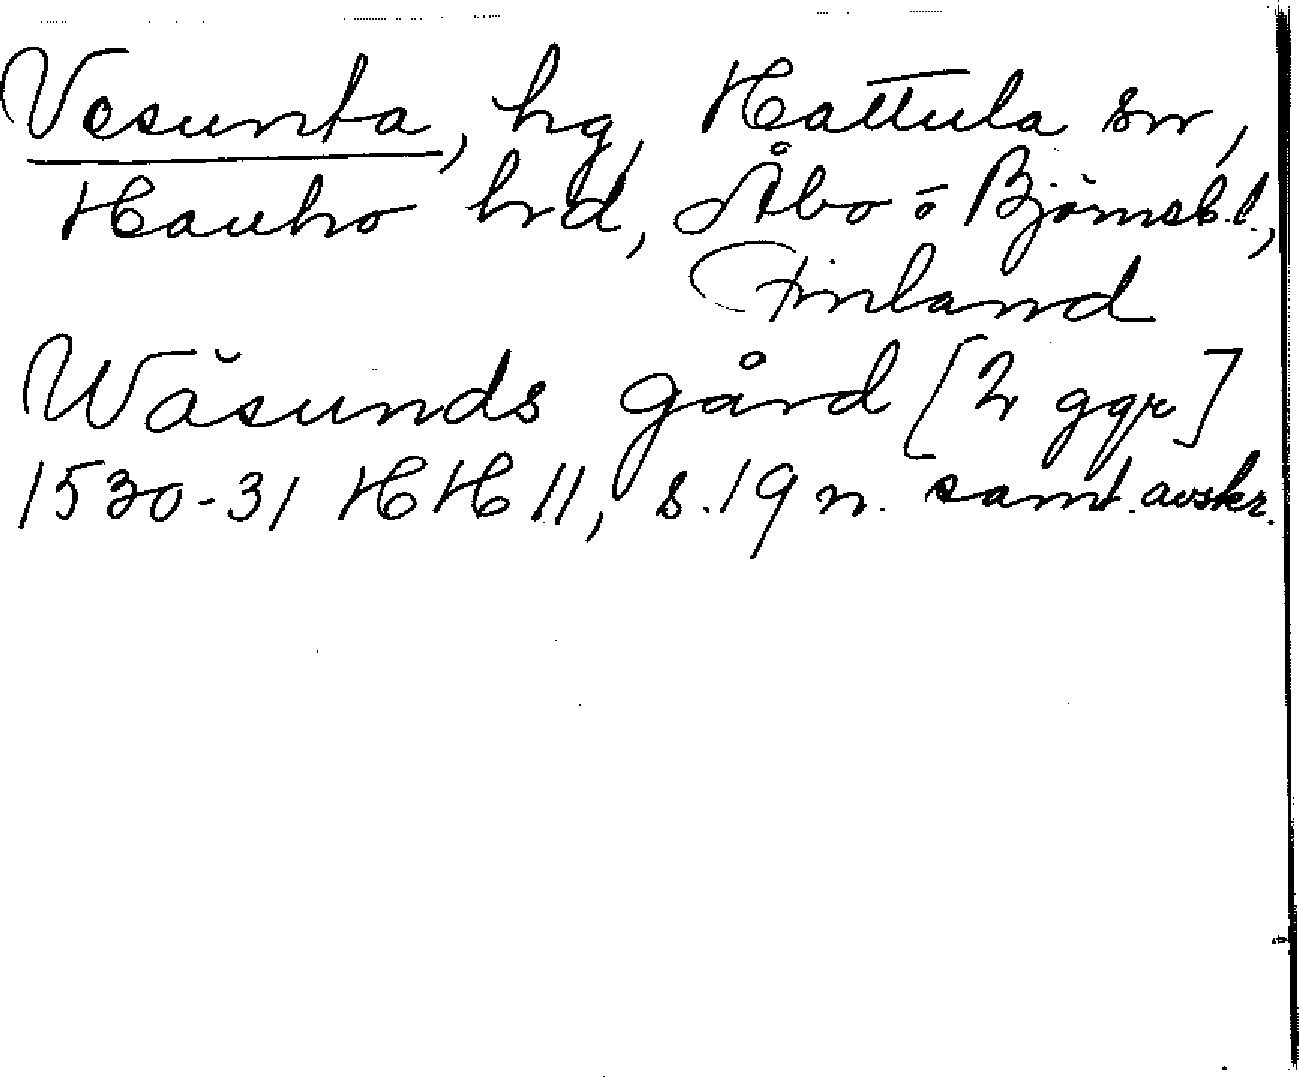 Vesunta, hg, Hattula sn,
Hauho hrd, Åbo o Björneb.l.,
Finland
Wäsunds gård [2 ggr]
1530-31 HH 11, s. 19 n. samt. avskr.